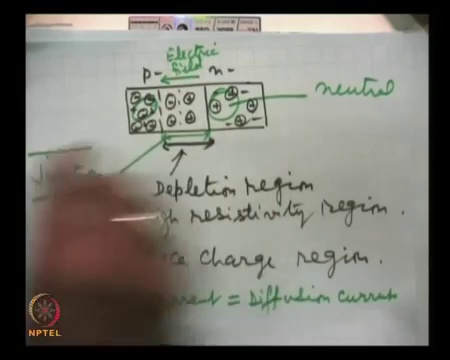 Electric
Field
p- n-
neutral
Depletion region
resistivity region.
Charge region.
= Diffusion current
NPTEL